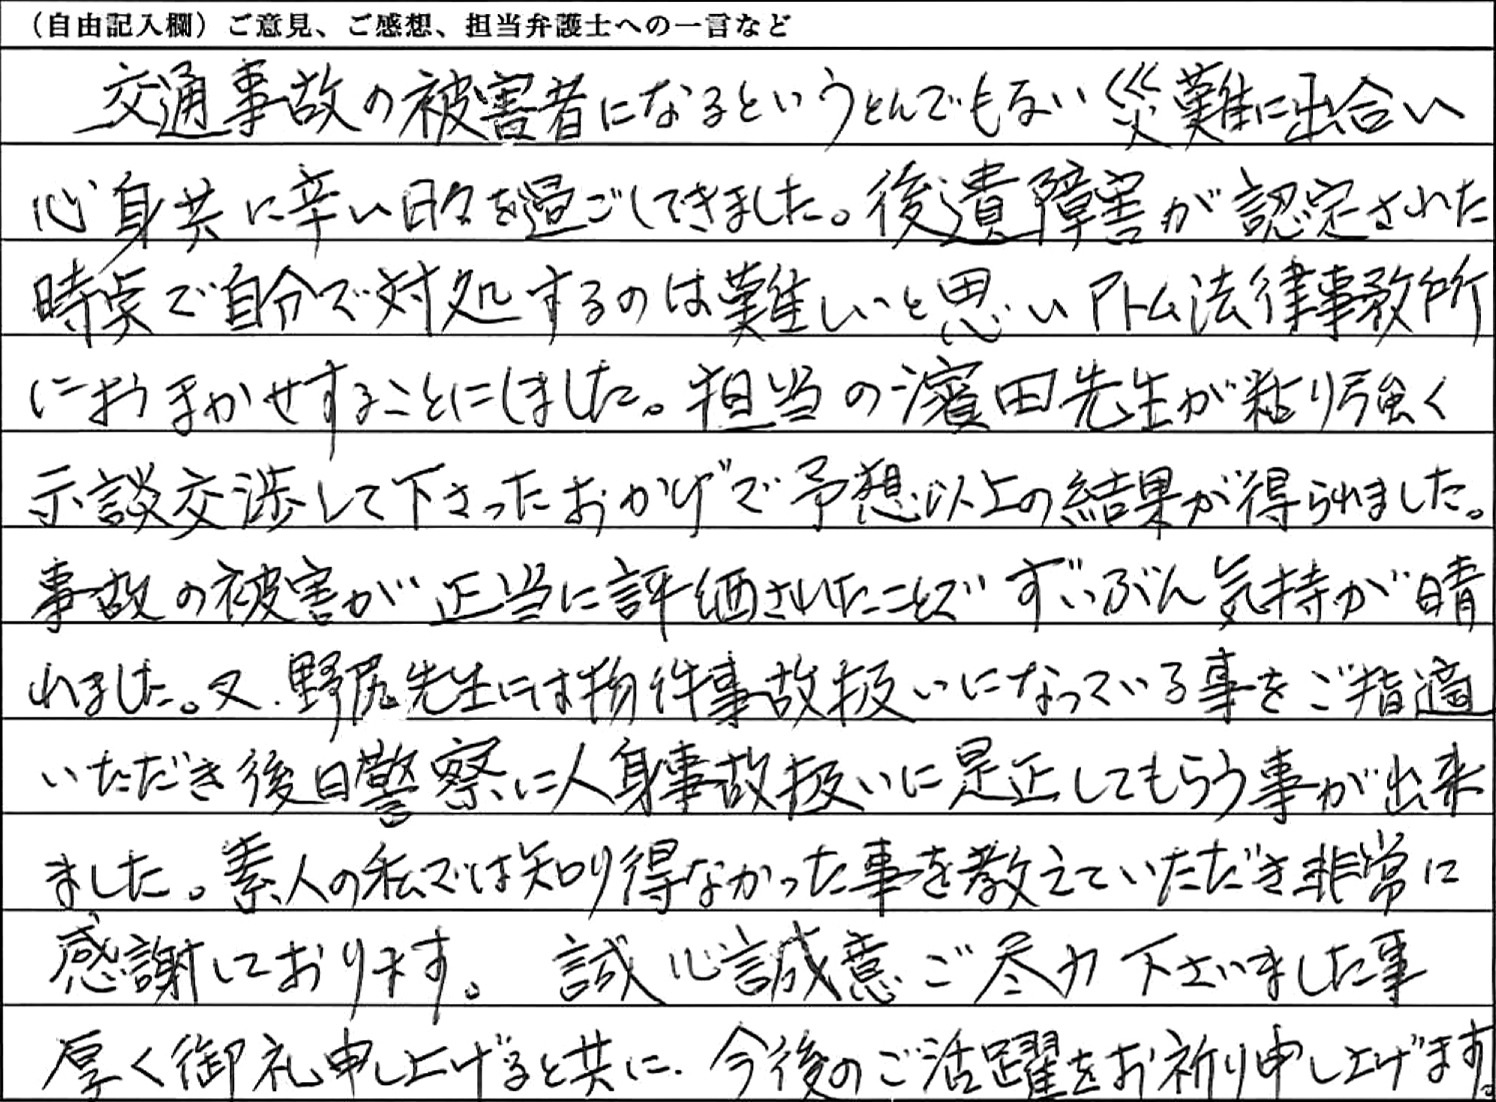 （自由記入欄）ご意見、ご感想、担当弁護士への一言など
交通事故の被害者になるというとんでもない災難に出合い
心身共に辛い日々を過ごしてきました。後遺障害が認定された
時点で自分で対処するのは難しいと思いアトム法律事務所
におまかせすることにしました。担当の濱田先生が粘り強く
示談交渉して下さったおかげで予想以上の結果が得られました。
事故の被害が正当に評価されたことでずいぶん気持が晴
れました。又、野尻先生には物件事故扱いになっている事をご指適
いただき後日警察に人身事故扱いに是正してもらう事が出来
ました。素人の私では知り得なかった事を教えていただき非常に
感謝しております。誠心誠意ご尽力下さいました事
厚く御礼申し上げると共に、今後のご活躍をお祈り申し上げます。